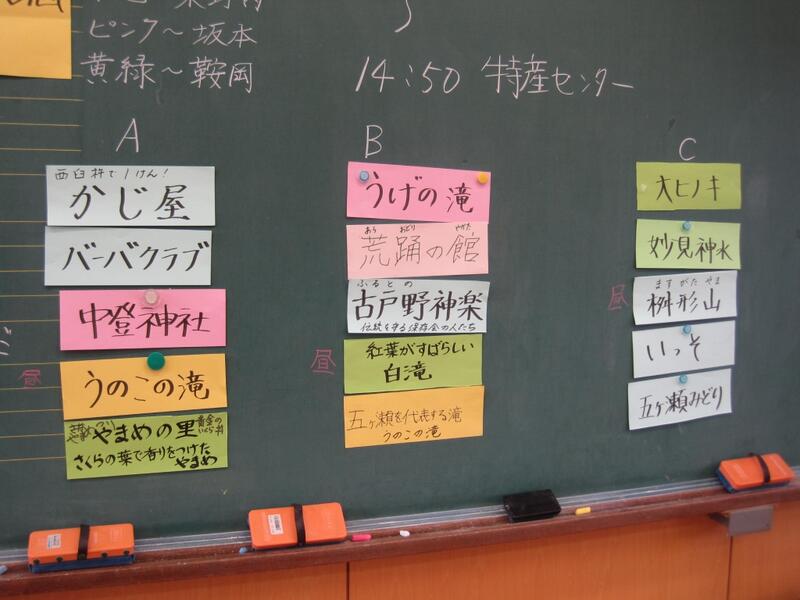 ピンク～坂本
黄緑～鞍岡
14:50 特産センター
A
西臼杵で1けん!
かじ屋
バーバクラブ
中登神社
昼
うのこの滝
やまめの里
さくらの葉で香りをつけた
やまめ
B
うげの滝
あら おどり やかた
荒踊の館
ふるとの
古戸野神楽
伝統を守る保存会の人たち
昼
紅葉がすばらしい
白滝
五ヶ瀬を代表する滝
うのこの滝
C
大ヒノキ
妙見神水
昼
ますがた やま
桝形山
いっそ
五ヶ瀬みどり